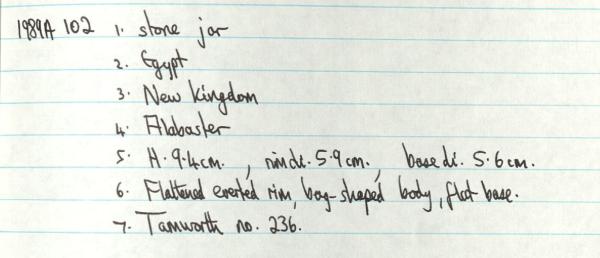 1989A 102 1. stone jar
2. Egypt
3. New Kingdom
4. Alabaster
5. H. 9.4cm., rim di. 5.9cm., base di. 5.6cm.
6. Flattened everted rim, bag-shaped body, flat base.
7. Tamworth no. 236.